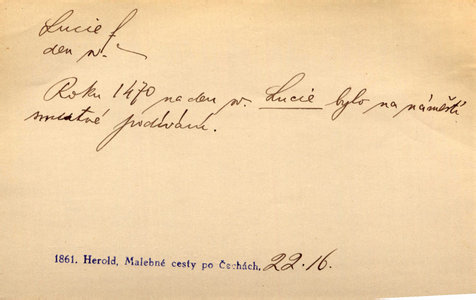 Lucie f
den w.
Roku 1470 na den w. Lucie bylo na náměstí
smutné podívání.
1861. Herold, Malebné cesty po Čechách. 22.16.